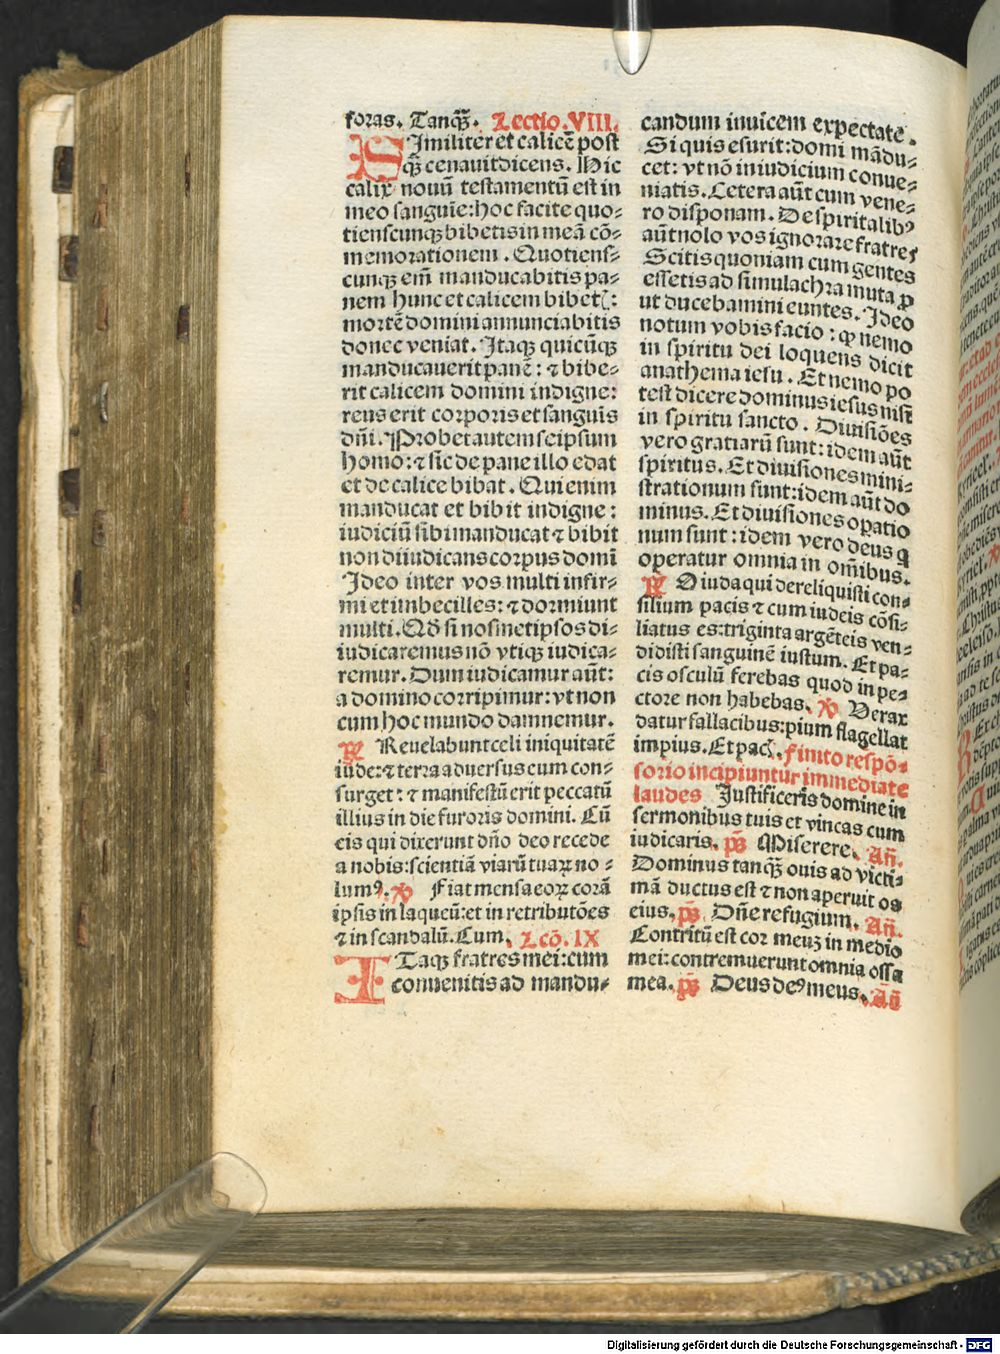 foras. Tanqꝫ̃. Lectio.VIII.
SJmiliter et calicē post
qꝫ̃ cenauit dicens. Hic
calix nouū testamentū est in
meo sanguie: hoc facite quo⸗
tienscunqꝫ bibetis in meā cō⸗
memorationem. Quotiens⸗
cunqꝫ em̄ manducabitis pa⸗
nem hunc et calicem bibet[:
mortē domini annunciabitis
donec veniat. Jtaqꝫ quicūqꝫ
manducauerit panē: ⁊ bibe⸗
rit calicem domini indigne:
reus erit corporis et sanguis
dn̄i. Probet autem seipsum
homo: ⁊ sic de pane illo edat
et de calice bibat. Qui enim
manducat et bibit indigne:
iudiciū sibi manducat ⁊ bibit
non diiudicans corpus domī
Jdeo inter vos multi infir⸗
mi et imbecilles: ⁊ dormiunt
multi. Qd̄ si nosmetipsos di⸗
iudicaremus nō vtiqꝫ iudica⸗
remur. Dum iudicamur aūt:
a domino corripimur: vt non
cum hoc mundo damnemur.
℟ Reuelabunt celi iniquitatē
iude: ⁊ terra aduersus eum con⸗
surget: ⁊ manifestū erit peccatū
illius in die furoris domini. Cū
eis qui dixerunt dn̄o deo recede
a nobis: scientiā viarū tuaꝝ no⸗
lumꝰ. ℣ Fiat mensa eoꝝ corā
ipsis in laqueū: et in retributōes
⁊ in scandalū. Cum. Lcō. IX
JTaqꝫ fratres mei: cum
conuenitis ad mandu⸗
candum inuicem expectate.
Si quis esurit: domi mādu⸗
cet: vt nō in iudicium conue⸗
niatis. Cetera aūt cum vene⸗
ro disponam. De spiritalibꝰ
aūt nolo vos ignorare fratres
Scitis quoniam cum gentes
essetis ad simulachra muta ꝓ
ut ducebamini euntes. Jdeo
notum vobis facio: ꝙ nemo
in spiritu dei loquens dicit
anathema iesu. Et nemo po
test dicere dominus iesus nisi
in spiritu sancto. Diuisiōes
vero gratiarū sunt: idem aūt
spiritus. Et diuisiones mini⸗
strationum sunt: idem aūt do
minus. Et diuisiones opatio
num sunt: idem vero deus q
operatur omnia in om̄ibus.
℟ O iuda qui dereliquisti con⸗
silium pacis ⁊ cum iudeis cōsi⸗
liatus es: triginta argēteis ven⸗
didisti sanguinē iustum. Et pa⸗
cis osculū ferebas quod in pe⸗
ctore non habebas. ℣ Verax
datur fallacibus: pium flagellat
impius. Et pac[. Finito respō⸗
sorio incipiuntur immediate
laudes Justificeris domine in
sermonibus tuis et vincas cum
iudicaris. ps̄ Miserere. Añ.
Dominus tanqꝫ̃ ouis ad victi⸗
mā ductus est ⁊ non aperuit os
eius. ps̄ Dn̄e refugium. Añ.
Contritū est cor meuꝫ in medio
mei: contremuerunt omnia ossa
mea. ps̄ Deus deꝰ meus. Añ
Digitalisierung gefördert durch die Deutsche Forschungsgemeinschaft - DFG